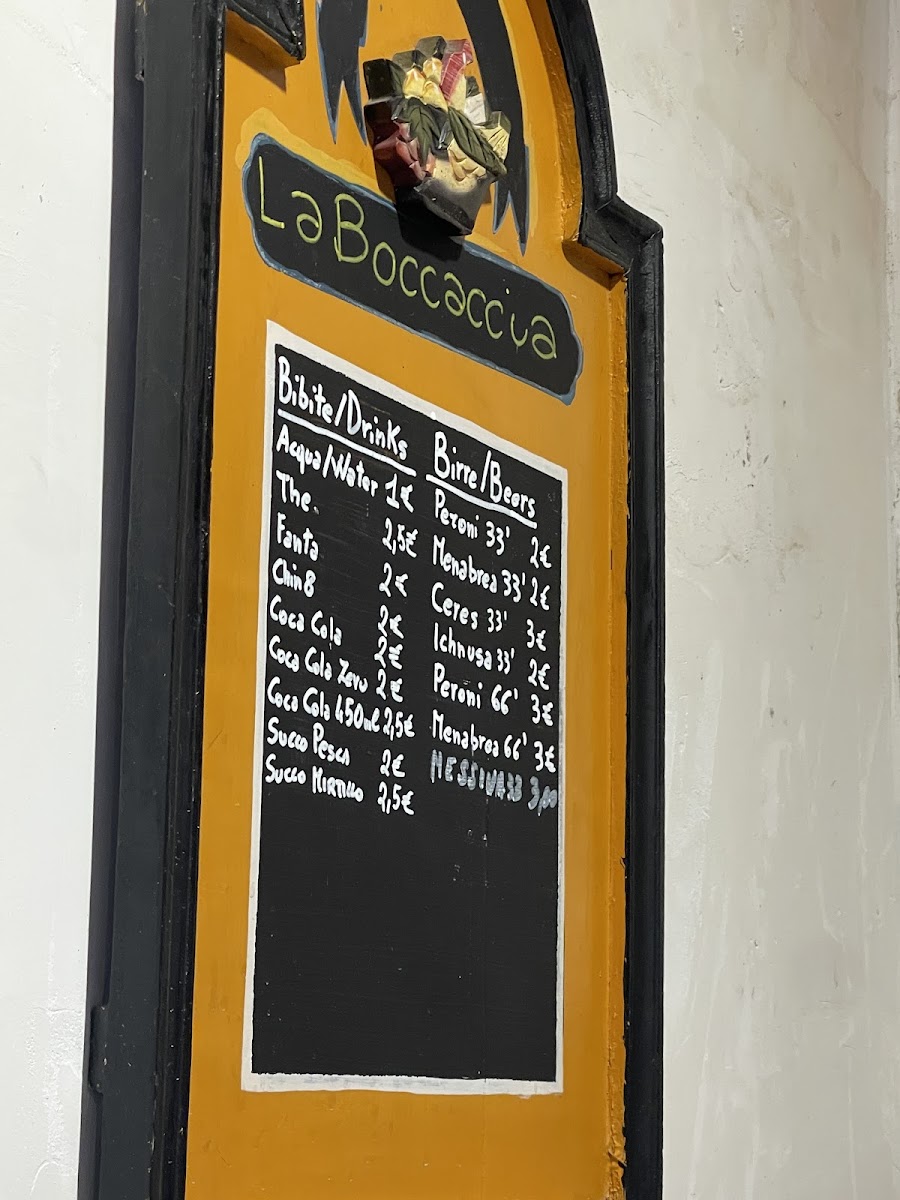 La Boccaccia
Bibite/Drinks
Acqua/Water 1€
The. 2,5€
Fanta 2€
Chin8 2€
Coca Cola 2€
Coca Cola Zero 2€
Coca Cola 450ml 2,5€
Succo Pesca 2€
Succo Mirtillo 2,5€
Birre/Beers
Peroni 33' 2€
Menabrea 33' 2€
Ceres 33' 3€
Ichnusa 33' 2€
Peroni 66' 3€
Menabrea 66' 3€
MESSINA 33 3,00